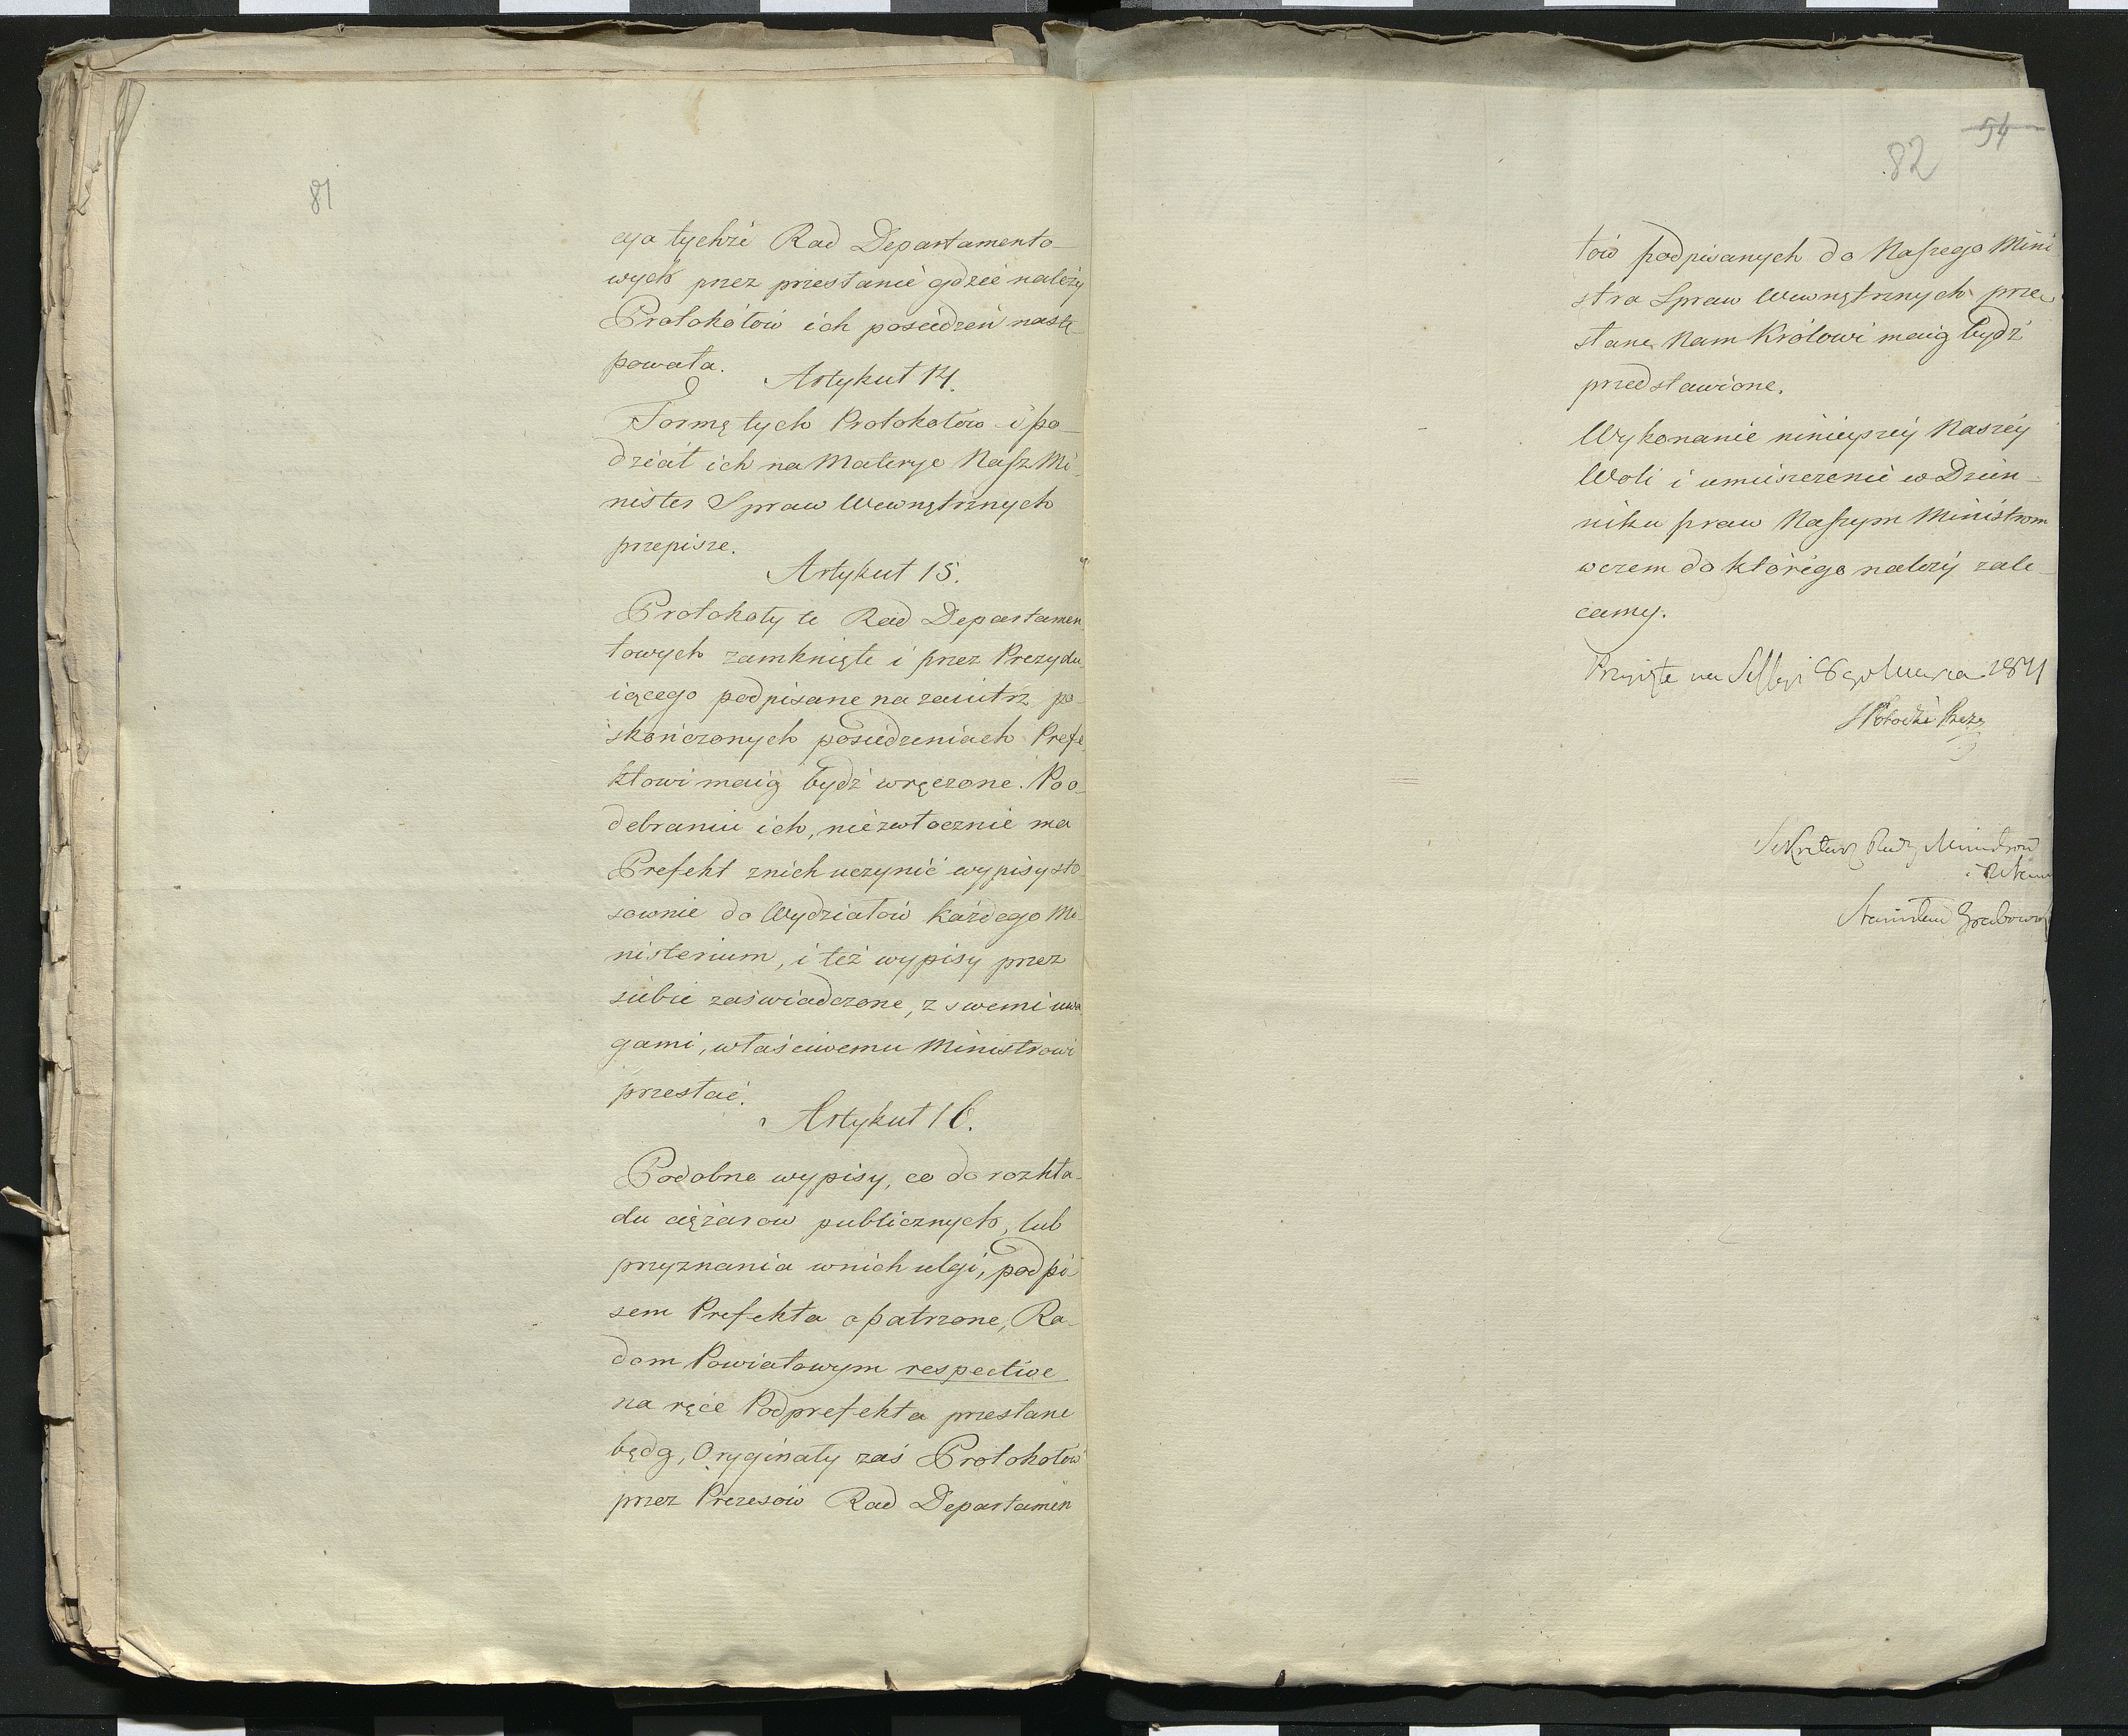 81
cya tychże Rad Departamento-
wych przez przesłanie gdzie należy
Protokołów ich posiedzeń nastę-
powała.
Artykuł 14.
Formę tych Protokołów i po-
dział ich na Materye Nasz Mi-
nister Spraw Wewnętrznych
przepisze.
Artykuł 15.
Protokoły te Rad Departamen-
towych zamknięte i przez Prezydu-
iącego podpisane na zaiutrz po
skończonych posiedzeniach Prefe-
ktowi maią bydź wręczone. Po o-
debraniu ich, niezwłocznie ma
Prefekt z nich uczynić wypisy sto-
sownie do Wydziałów każdego Mi-
nisterium, i też wypisy przez
siebie zaświadczone, z swemi uwa-
gami, właściwemu Ministrowi
przesłać.
Artykuł 16.
Podobne wypisy, co do rozkła-
du ciężarów publicznych, lub
przyznania w nich ulgi, podpi-
sem Prefekta opatrzone, Ra-
dom Powiatowym respective
na ręce Podprefekta przesłane
będą, Oryginały zaś Protokołów
przez Prezesów Rad Departamen
54
82
tów podpisanych do Naszego Mini
stra Spraw Wewnętrznych prze-
słane Nam Królowi maią bydź
przedstawione.
Wykonanie ninieyszéy Naszéy
Woli i umieszczenie w Dzien-
niku praw Naszym Ministrom
w czem do którego należy zale-
camy.
Przyięte na Sessyi 8go Marca 1811
Potocki Prezes
Sekretarz Rady Ministrów
Stanisław Grabowski